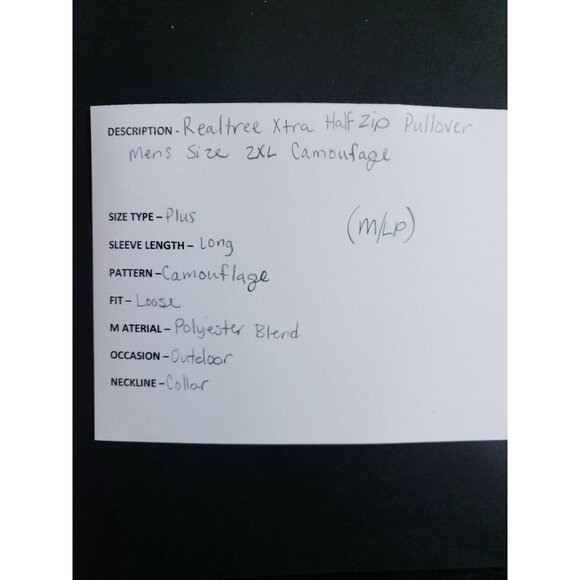 DESCRIPTION - Realtree Xtra Half Zip Pullover
Mens Size 2XL Camoufage
SIZE TYPE - Plus
(M/LP)
SLEEVE LENGTH - Long
PATTERN - Camouflage
FIT - Loose
MATERIAL - Polyester Blend
OCCASION - Outdoor
NECKLINE - Collar